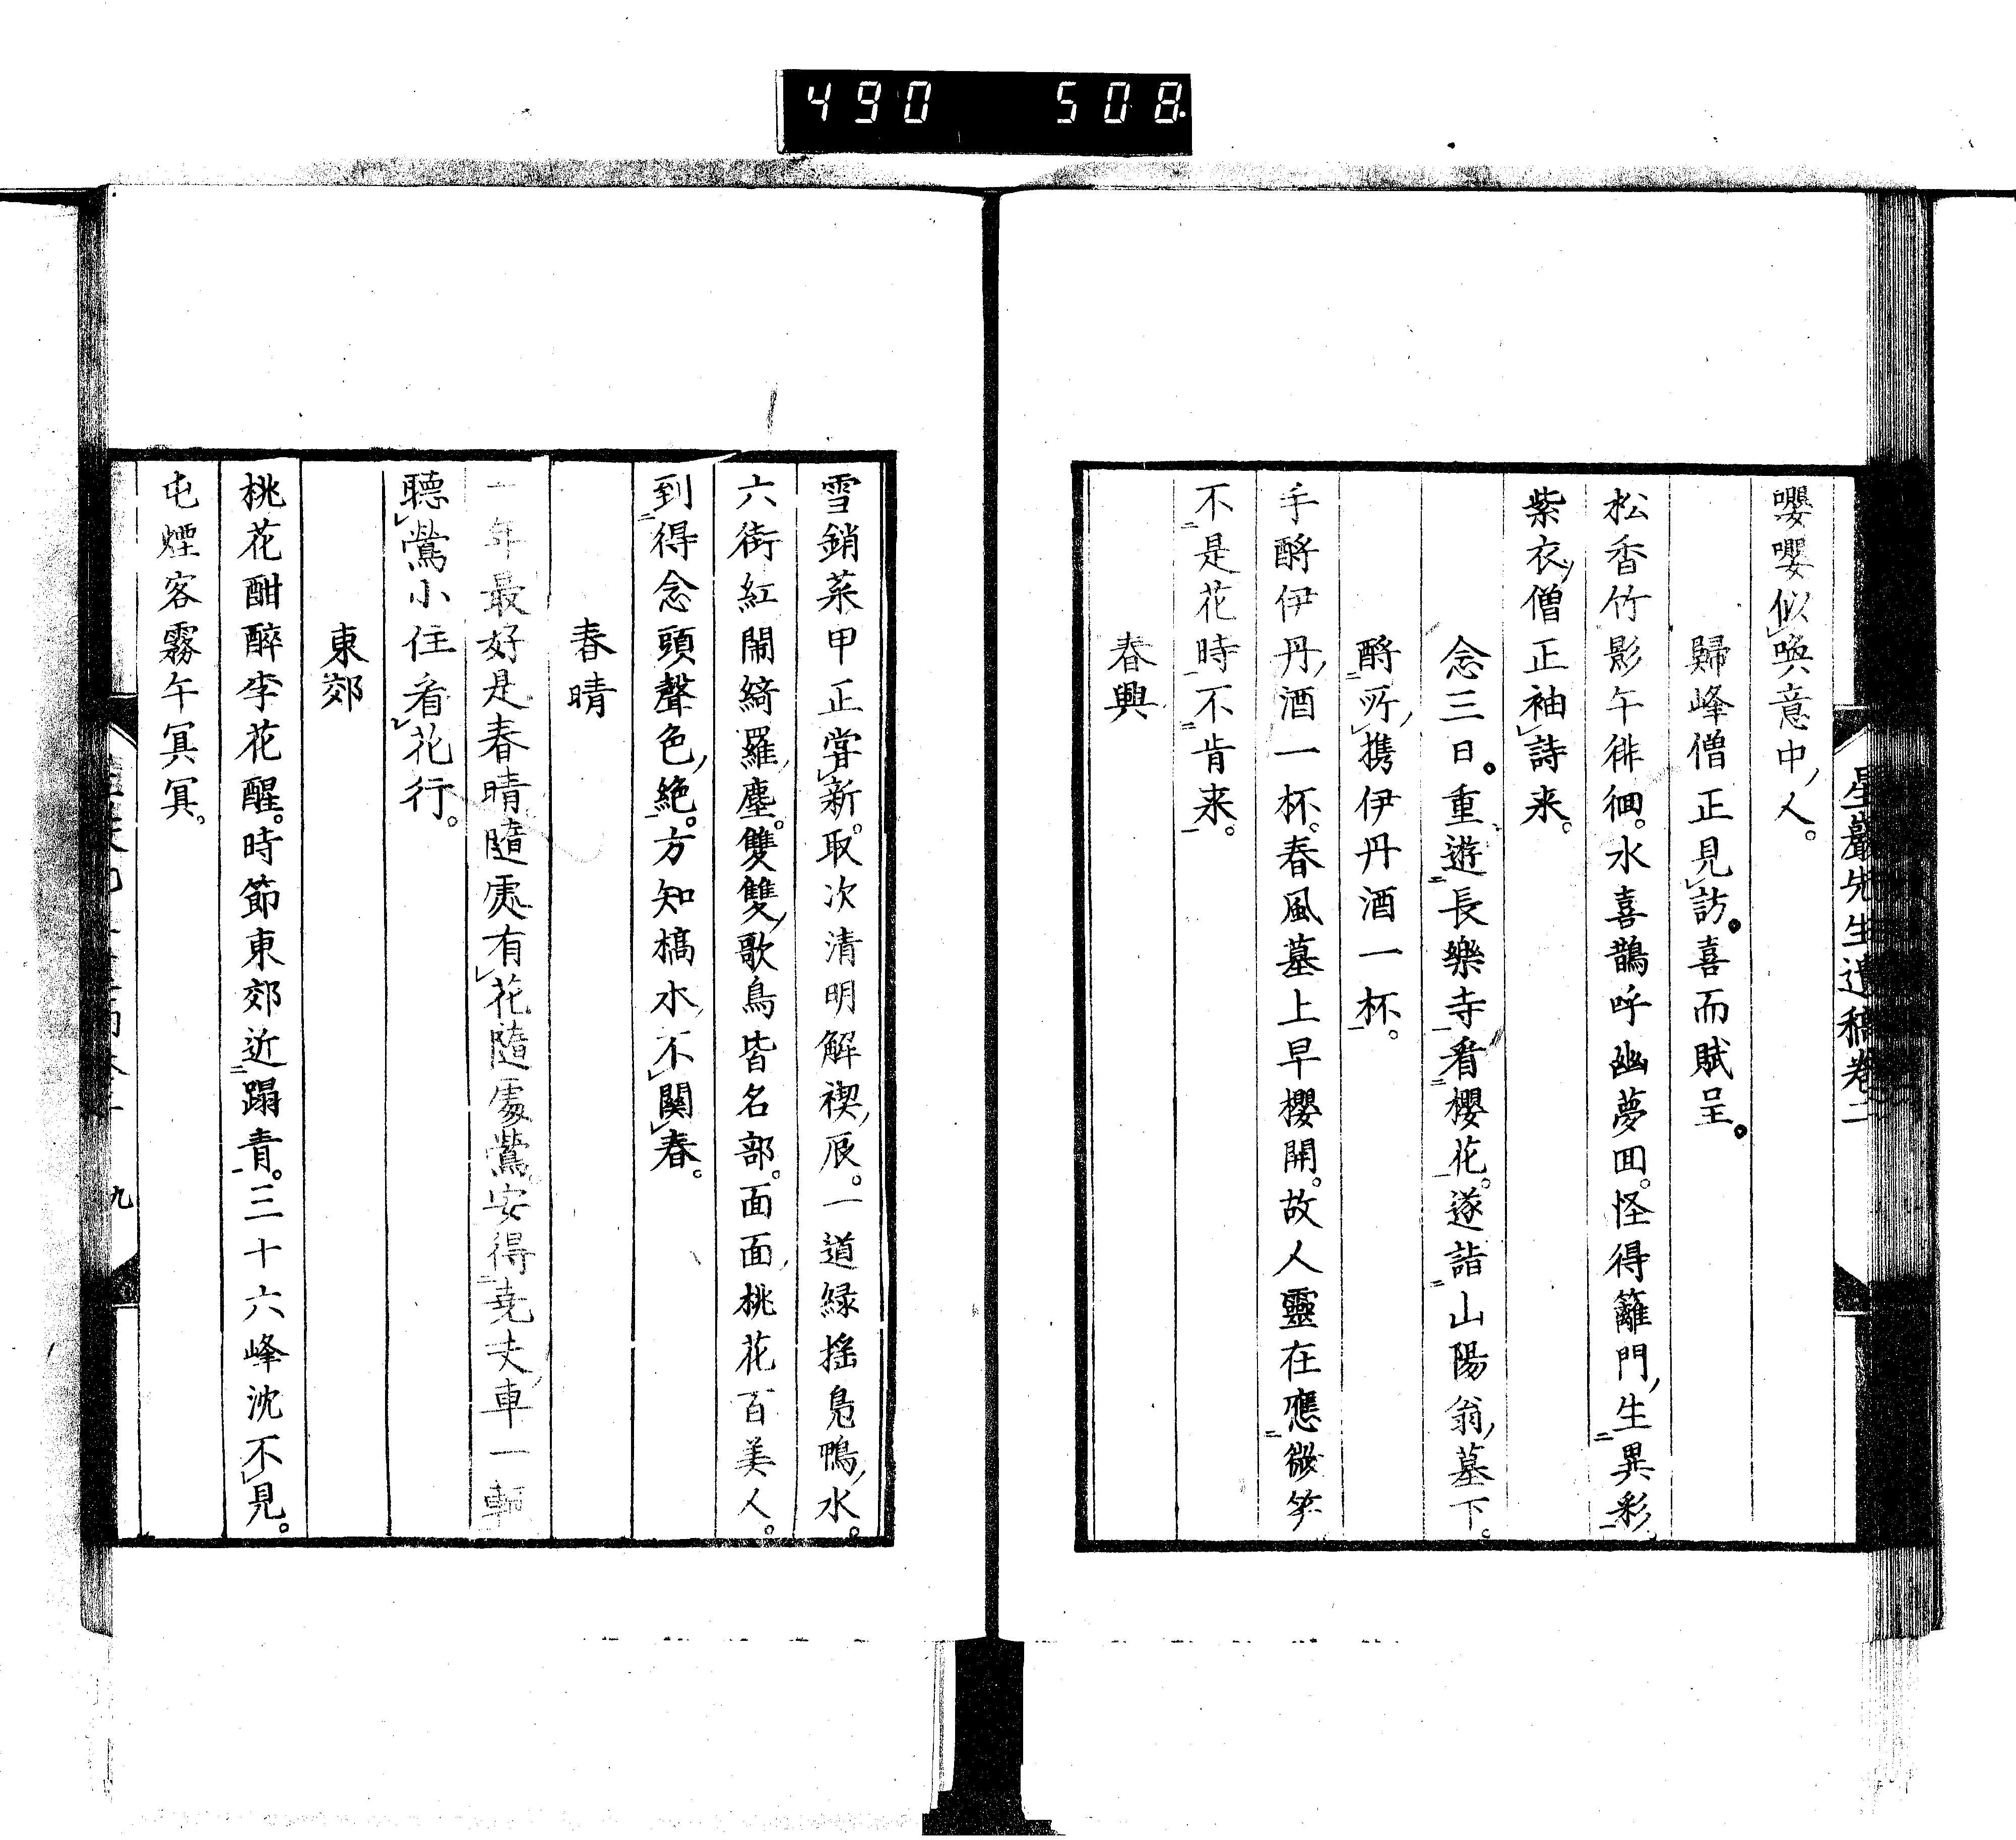 490 508
星巖先生遺稿卷二
嚶嚶似喚意中人。
歸峰僧正見訪。喜而賦呈。
松香竹影午徘徊。水喜鵲呼幽夢囬。怪得籬門生異彩
紫衣僧正袖詩来。
念三日。重遊長樂寺看櫻花。遂詣山陽翁墓下。
酹所携伊丹酒一杯。
手酹伊丹酒一杯。春風墓上早櫻開。故人靈在應微笑
不是花時不肯来。
春興
雪銷菜甲正嘗新。取次清明解禊辰。一道緑揺鳧鴨水。
六街紅閙綺羅塵。雙雙歌鳥皆名部。面面桃花百美人。
到得念頭聲色絶。方知槁木不關春。
春晴
一年最好是春晴隨處有花隨處鶯。安得堯夫車一輛
聽鶯小住看花行。
東郊
桃花酣醉李花醒。時節東郊近蹋青。三十六峰沈不見。
屯煙客霧午冥冥。
九